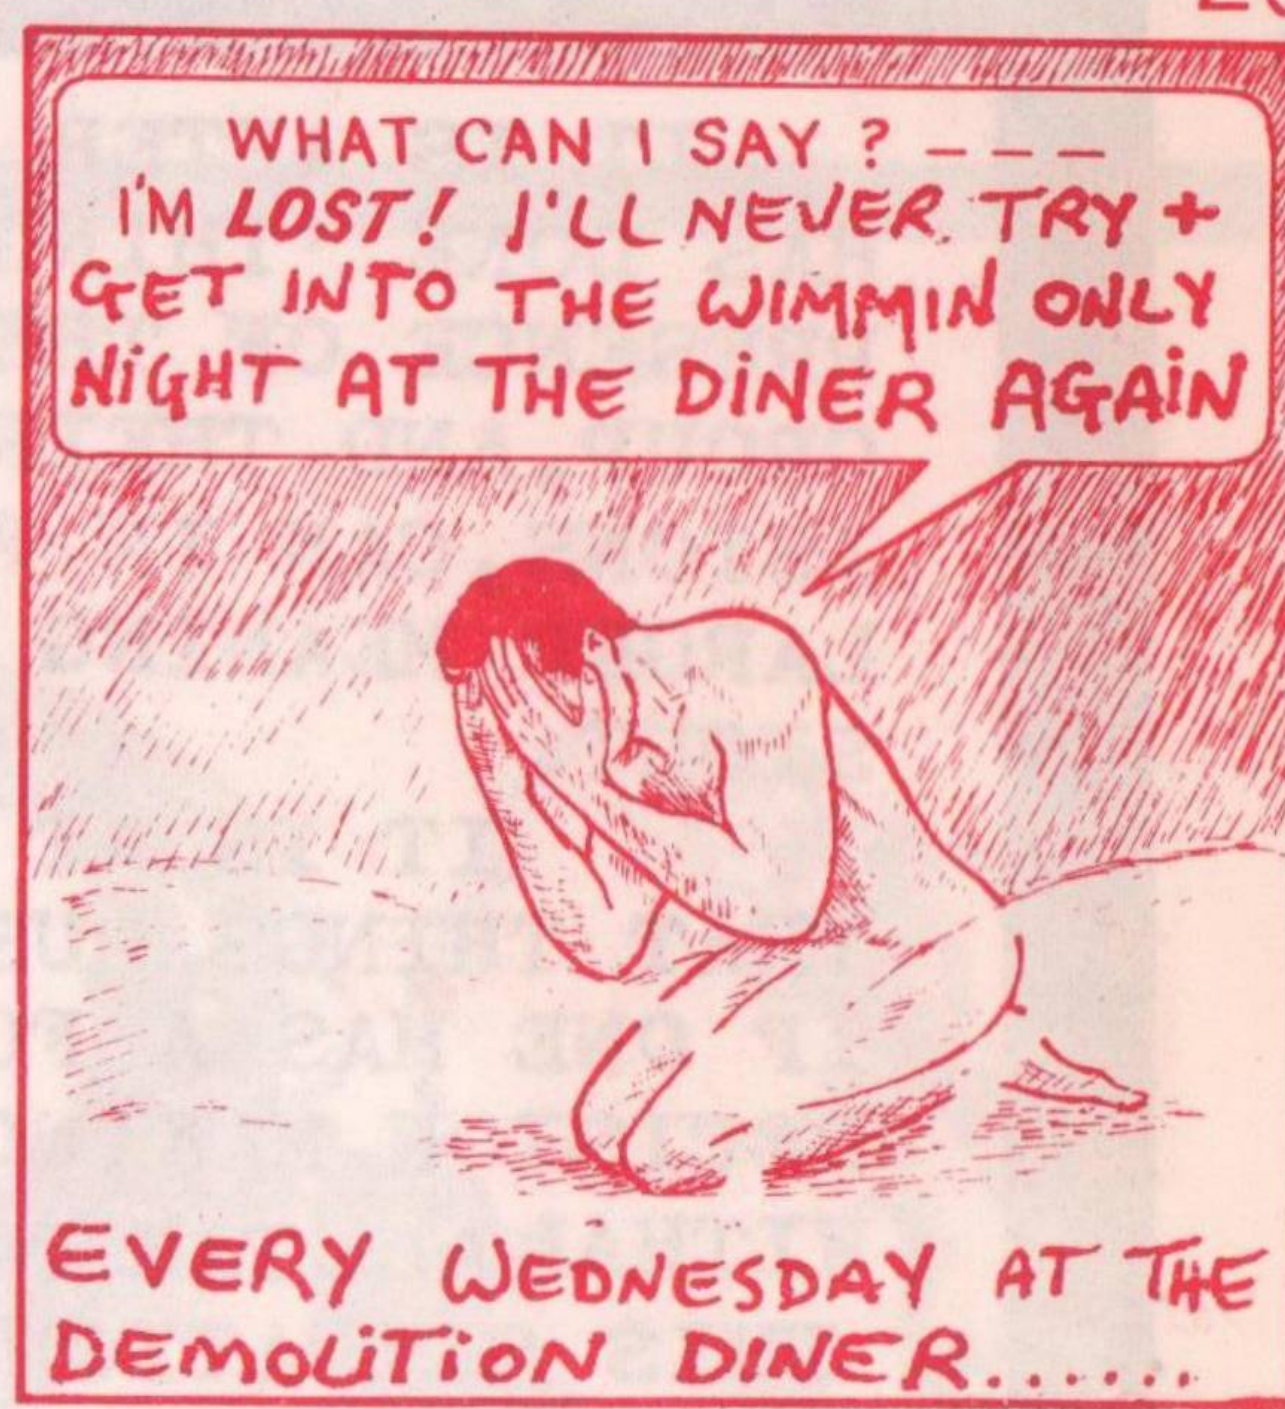 WHAT CAN I SAY ? – – –
I'M LOST! I'LL NEVER TRY +
GET INTO THE WIMMIN ONLY
NIGHT AT THE DINER AGAIN
EVERY WEDNESDAY AT THE
DEMOLITION DINER......